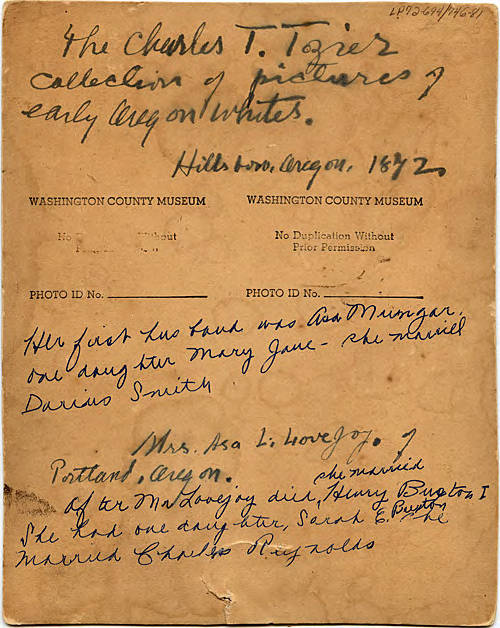 LP72-694/746-81
The Charles T. Tozier
collection of pictures of
early Oregon whites.
Hillsboro, Oregon. 1872
WASHINGTON COUNTY MUSEUM WASHINGTON COUNTY MUSEUM
No Without No Duplication Without
Prior Permission
PHOTO ID No. PHOTO ID No.
Her first husband was Asa Mungar.
one daughter Mary Jane - she married
Darius Smith
Mrs. Asa L. Lovejoy. of
Portland, Oregon.
she married
After Mr Lovejoy died, Henry Buxton I
She had one daughter, Sarah E. Buxton She
married Charles Reynolds